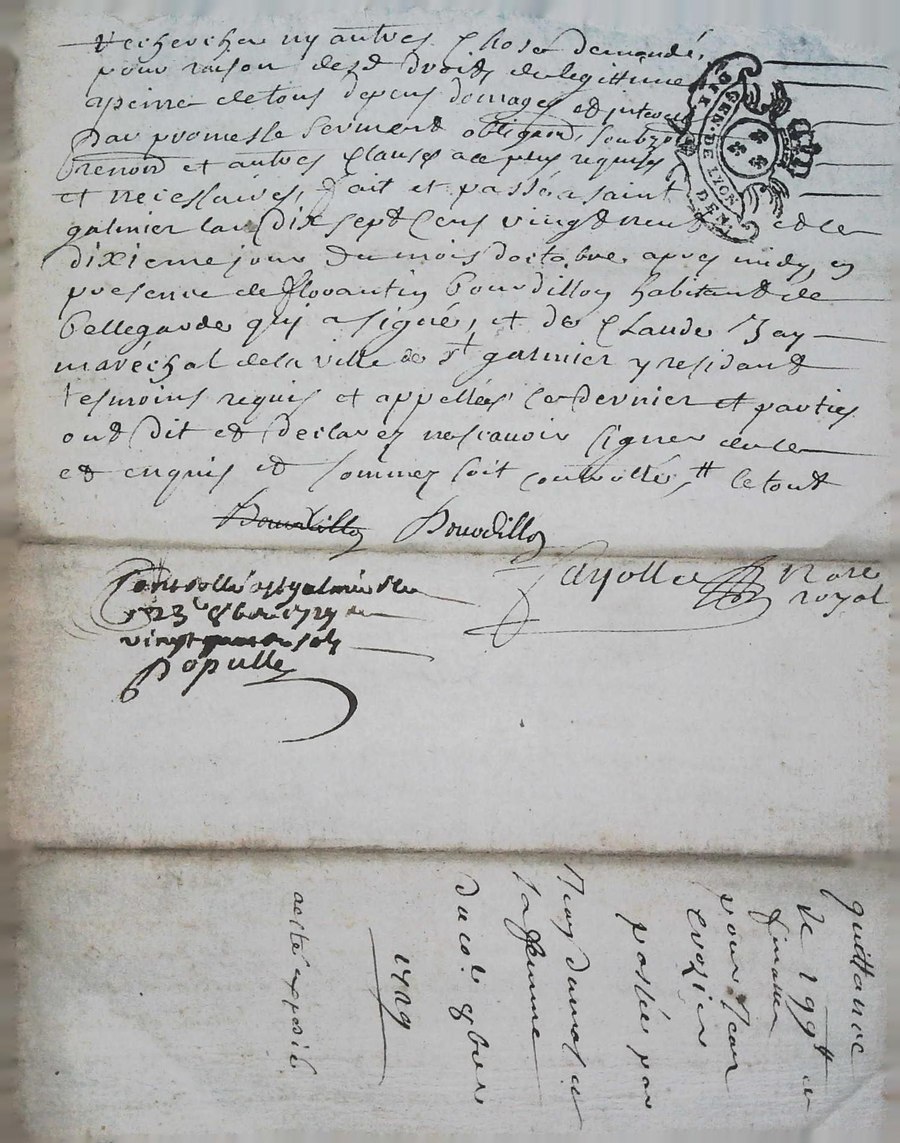 rechercher ny autres chose demandé,
pour raison desd droits de legittime
apeine de tous depens domages et interes
par promesse serment obligaõn, soubz
renon et autres clauses a ce plus requises
et necessaires, fait et passé a saint
galmier lan dix sept cens vingt neuf et le
dixieme jour du mois doctobre apres midy, en
presence de florantin Bourdillon habitant de
Bellegarde qui a signé, et de Claude Jay
maréchal de la ville de st galmier y residant
tesmoins requis et appellés ce dernier et parties
ont dit et declarez ne scavoir signer de ce
et enquis et sommez soit controllé, le tout
Bourdillon Bourdillon
Controllé a st galmier le
23e 8bre 1729
vingt sols
Populle
Fayolle Nore
royal
GEN. DE LYON
DEN.
quittance
de 199tt
pour Jean
passée par
sa femme
du 10e 8bre
1729
acte expedié